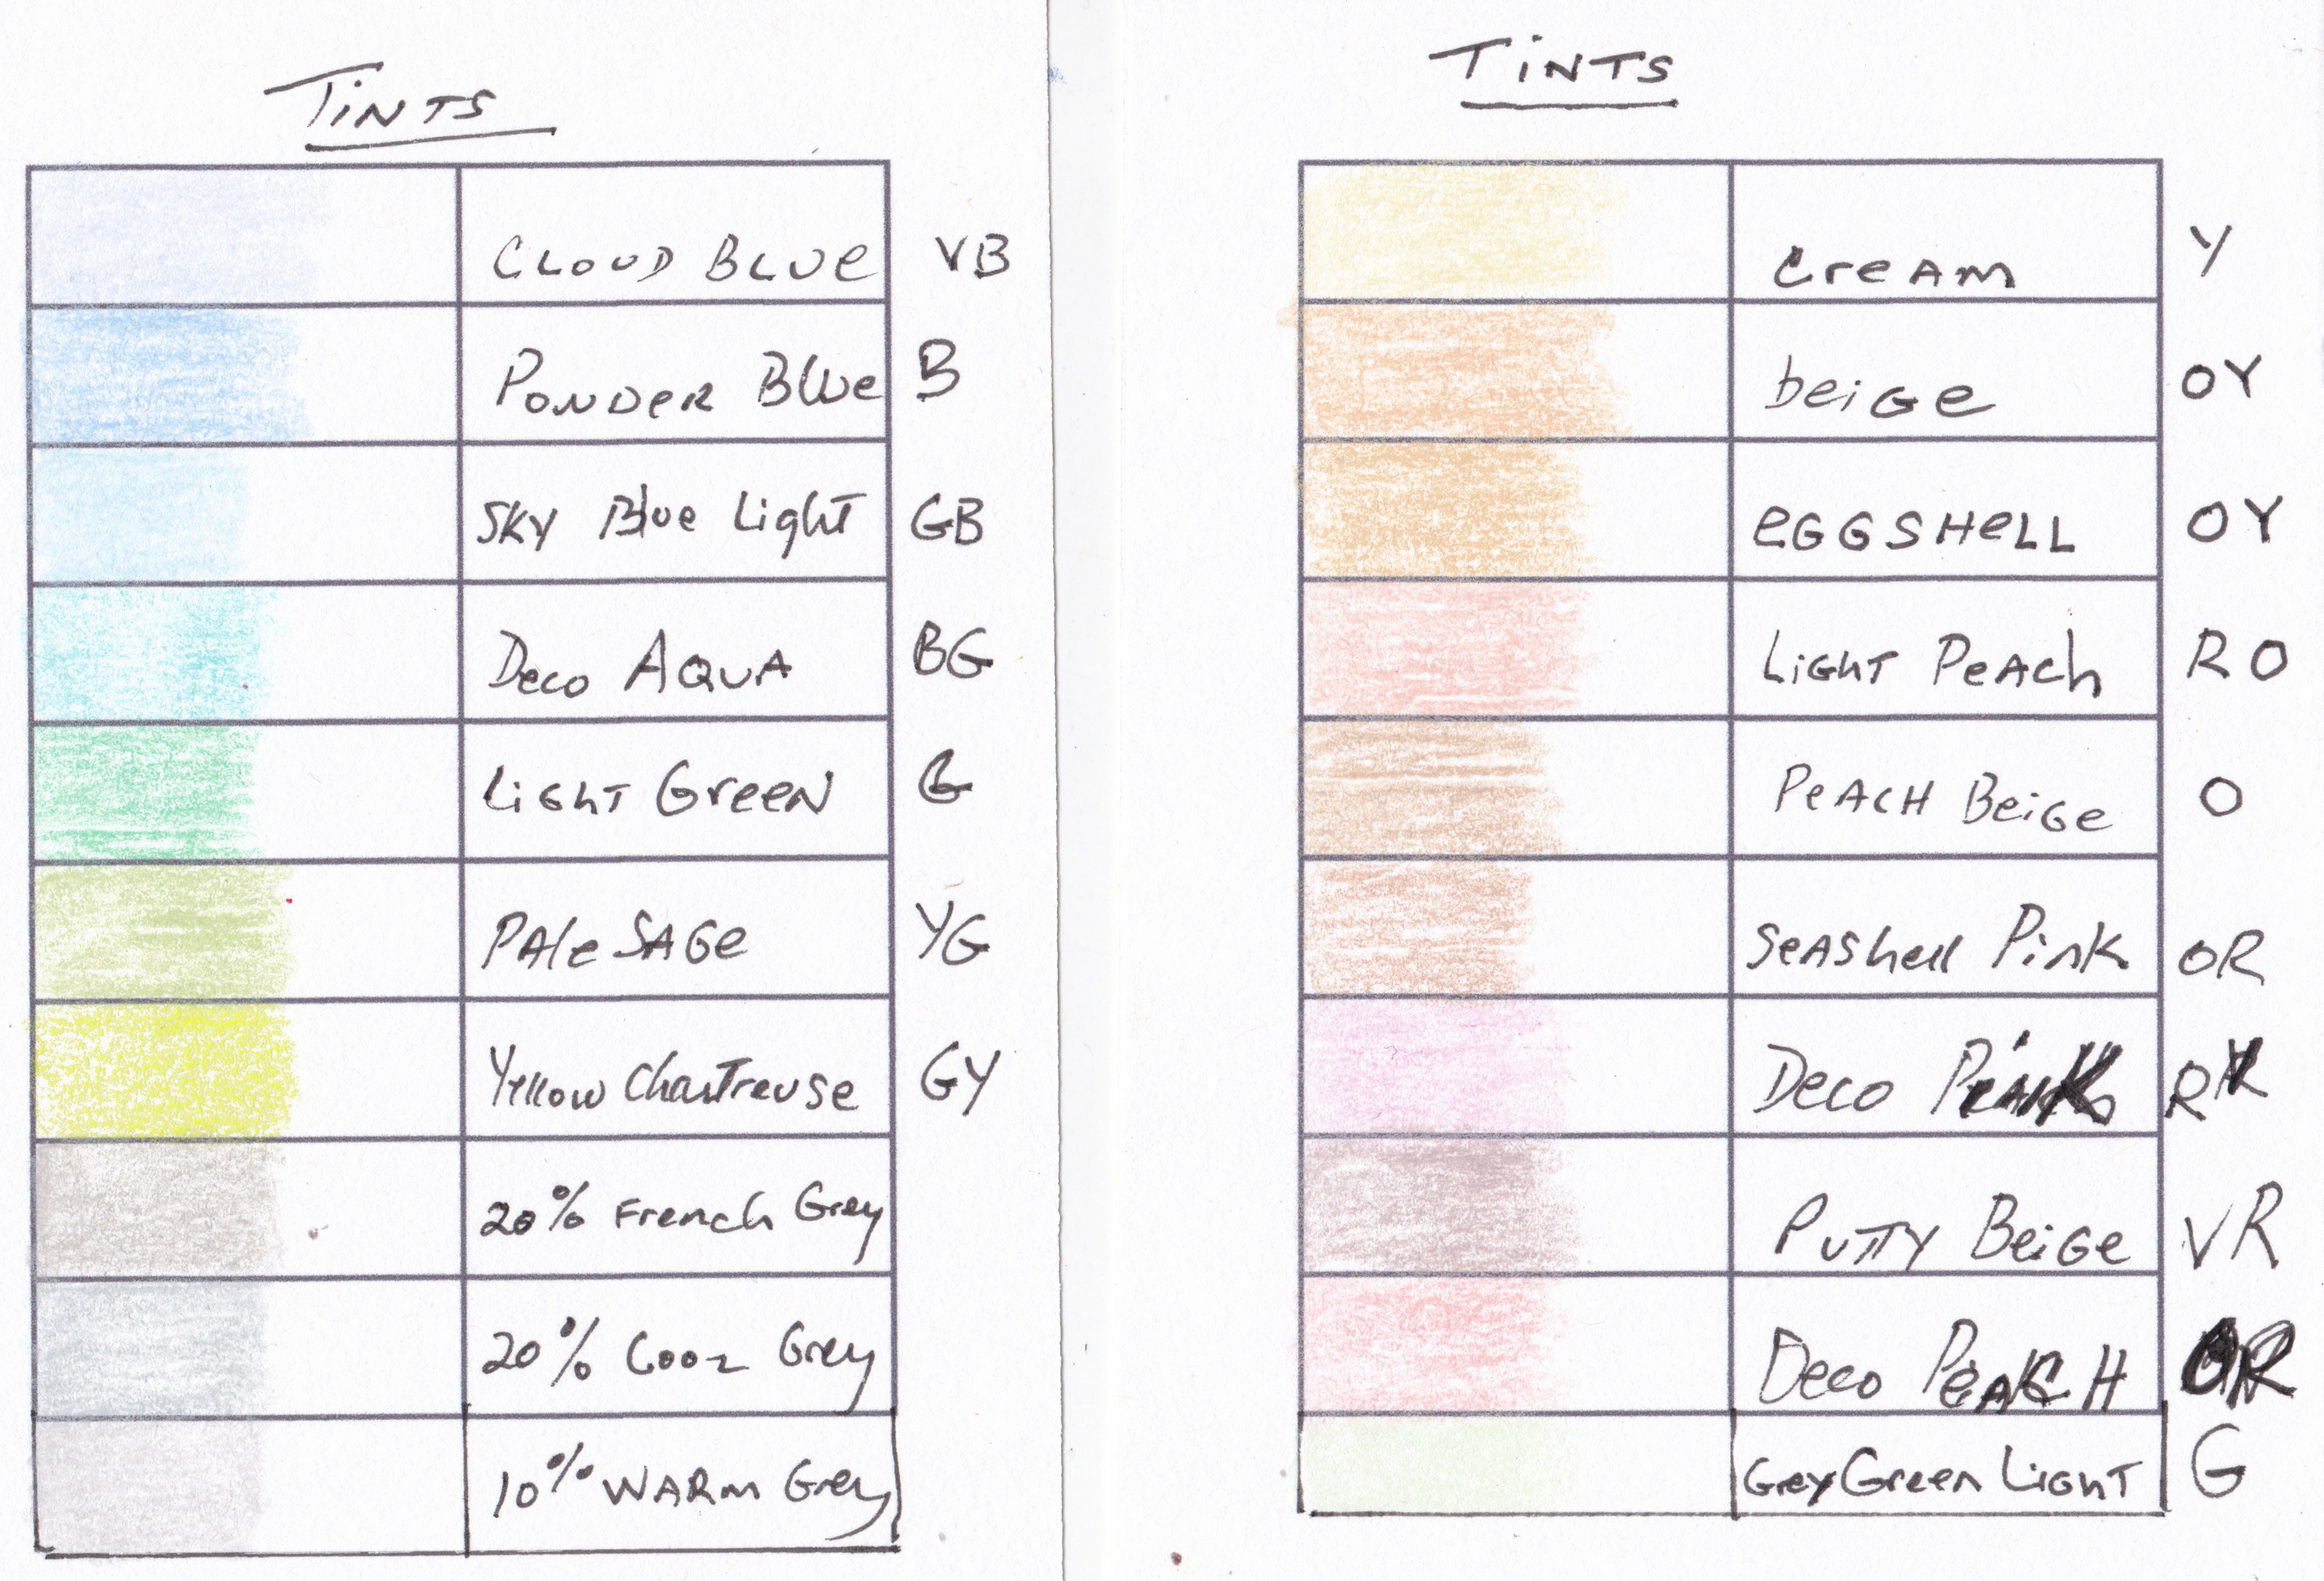 TiNTS
CLOUD BLUe VB
POWDeR BlUe B
SKY Blue Light GB
Deco AQUA BG
LiGhT GreeN G
PAle SAGe YG
Yellow Chartreuse GY
20% French Grey
20% Cool Grey
10% WARm Grey
TiNTS
creAm Y
beiGe OY
eGGSHeLL OY
LiGhT PeACh RO
PeACH BeiGe O
SeAShell Pink OR
Deco Pink R
PuTTY BeiGe VR
Deco PeACH OR
Grey Green LighT G